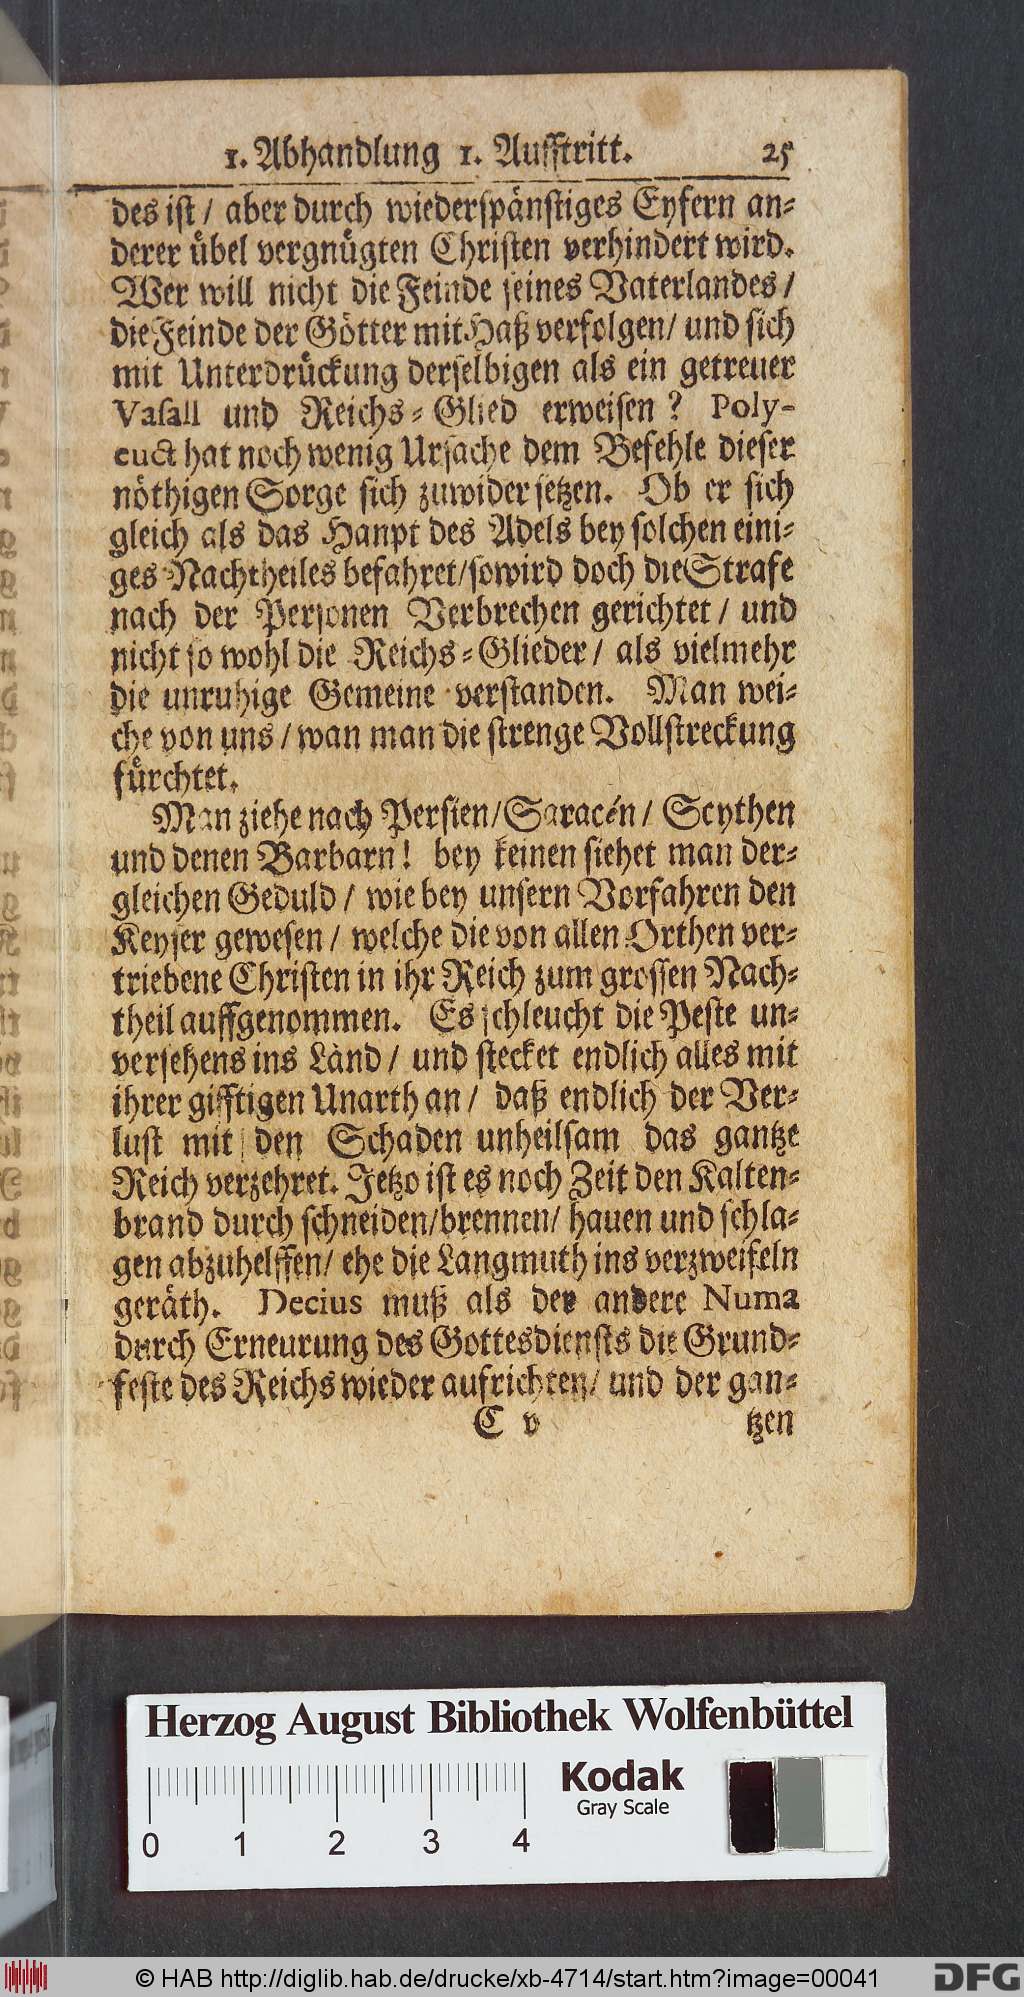 1. Abhandlung 1. Aufftritt. 25
des ist / aber durch wiederspänstiges Eyfern an-
derer übel vergnügten Christen verhindert wird.
Wer will nicht die Feinde seines Vaterlandes /
die Feinde der Götter mit Haß verfolgen / und sich
mit Unterdrückung derselbigen als ein getreuer
Vasall und Reichs-Glied erweisen? Poly-
euct hat noch wenig Ursache dem Befehle dieser
nöthigen Sorge sich zuwider setzen. Ob er sich
gleich als das Hanpt des Adels bey solchen eini-
ges Nachtheiles befahret / so wird doch die Strafe
nach der Personen Verbrechen gerichtet / und
nicht so wohl die Reichs-Glieder / als vielmehr
die unruhige Gemeine verstanden. Man wei-
che von uns / wan man die strenge Vollstreckung
fürchtet.
Man ziehe nach Persien / Saracen / Scythen
und denen Barbarn! bey keinen siehet man der-
gleichen Geduld / wie bey unsern Vorfahren den
Keyser gewesen / welche die von allen Orthen ver-
triebene Christen in ihr Reich zum grossen Nach-
theil auffgenommen. Es schleucht die Peste un-
versehens ins Land / und stecket endlich alles mit
ihrer gifftigen Unarth an / daß endlich der Ver-
lust mit den Schaden unheilsam das gantze
Reich verzehret. Jetzo ist es noch Zeit den Kalten-
brand durch schneiden / brennen / hauen und schla-
gen abzuhelffen / ehe die Langmuth ins verzweifeln
geräth. Decius muß als der andere Numa
durch Erneurung des Gottesdiensts die Grund-
feste des Reichs wieder aufrichten / und der gan-
C v tzen
Herzog August Bibliothek Wolfenbüttel
Kodak
Gray Scale
0 1 2 3 4
© HAB http://diglib.hab.de/drucke/xb-4714/start.htm?image=00041
DFG